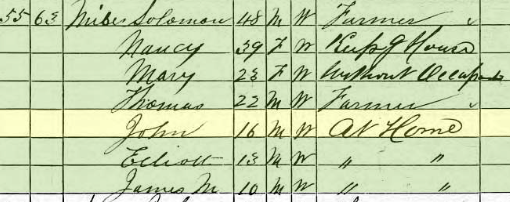 55 63 Miles Solomon 48 M W Farmer
Nancy 39 F W Keeps House
Mary 23 F W Without Occupat
Thomas 22 M W Farmer
John 16 M W At Home
Elliott 13 M W " "
James M 10 M W " "